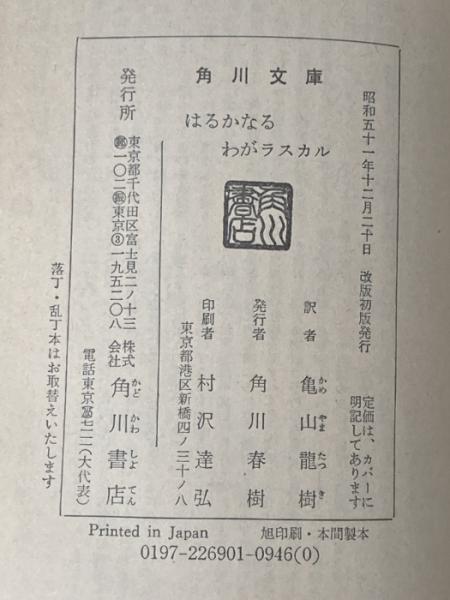 角川文庫
はるかなる
わがラスカル
昭和五十一年十二月二十日 改版初版発行
定価は、カバーに
明記してあります
訳者 亀山龍樹
かめ やま たつ き
発行者 角川春樹
印刷者 村沢達弘
東京都港区新橋四ノ三十ノ八
発行所
東京都千代田区富士見二ノ十三
一〇二 東京③一九五二〇八
株式会社 角川書店
かど かわ しよ てん
電話東京 七一一(大代表)
落丁・乱丁本はお取替えいたします
角川書店
Printed in Japan 旭印刷・本間製本
0197-226901-0946(0)